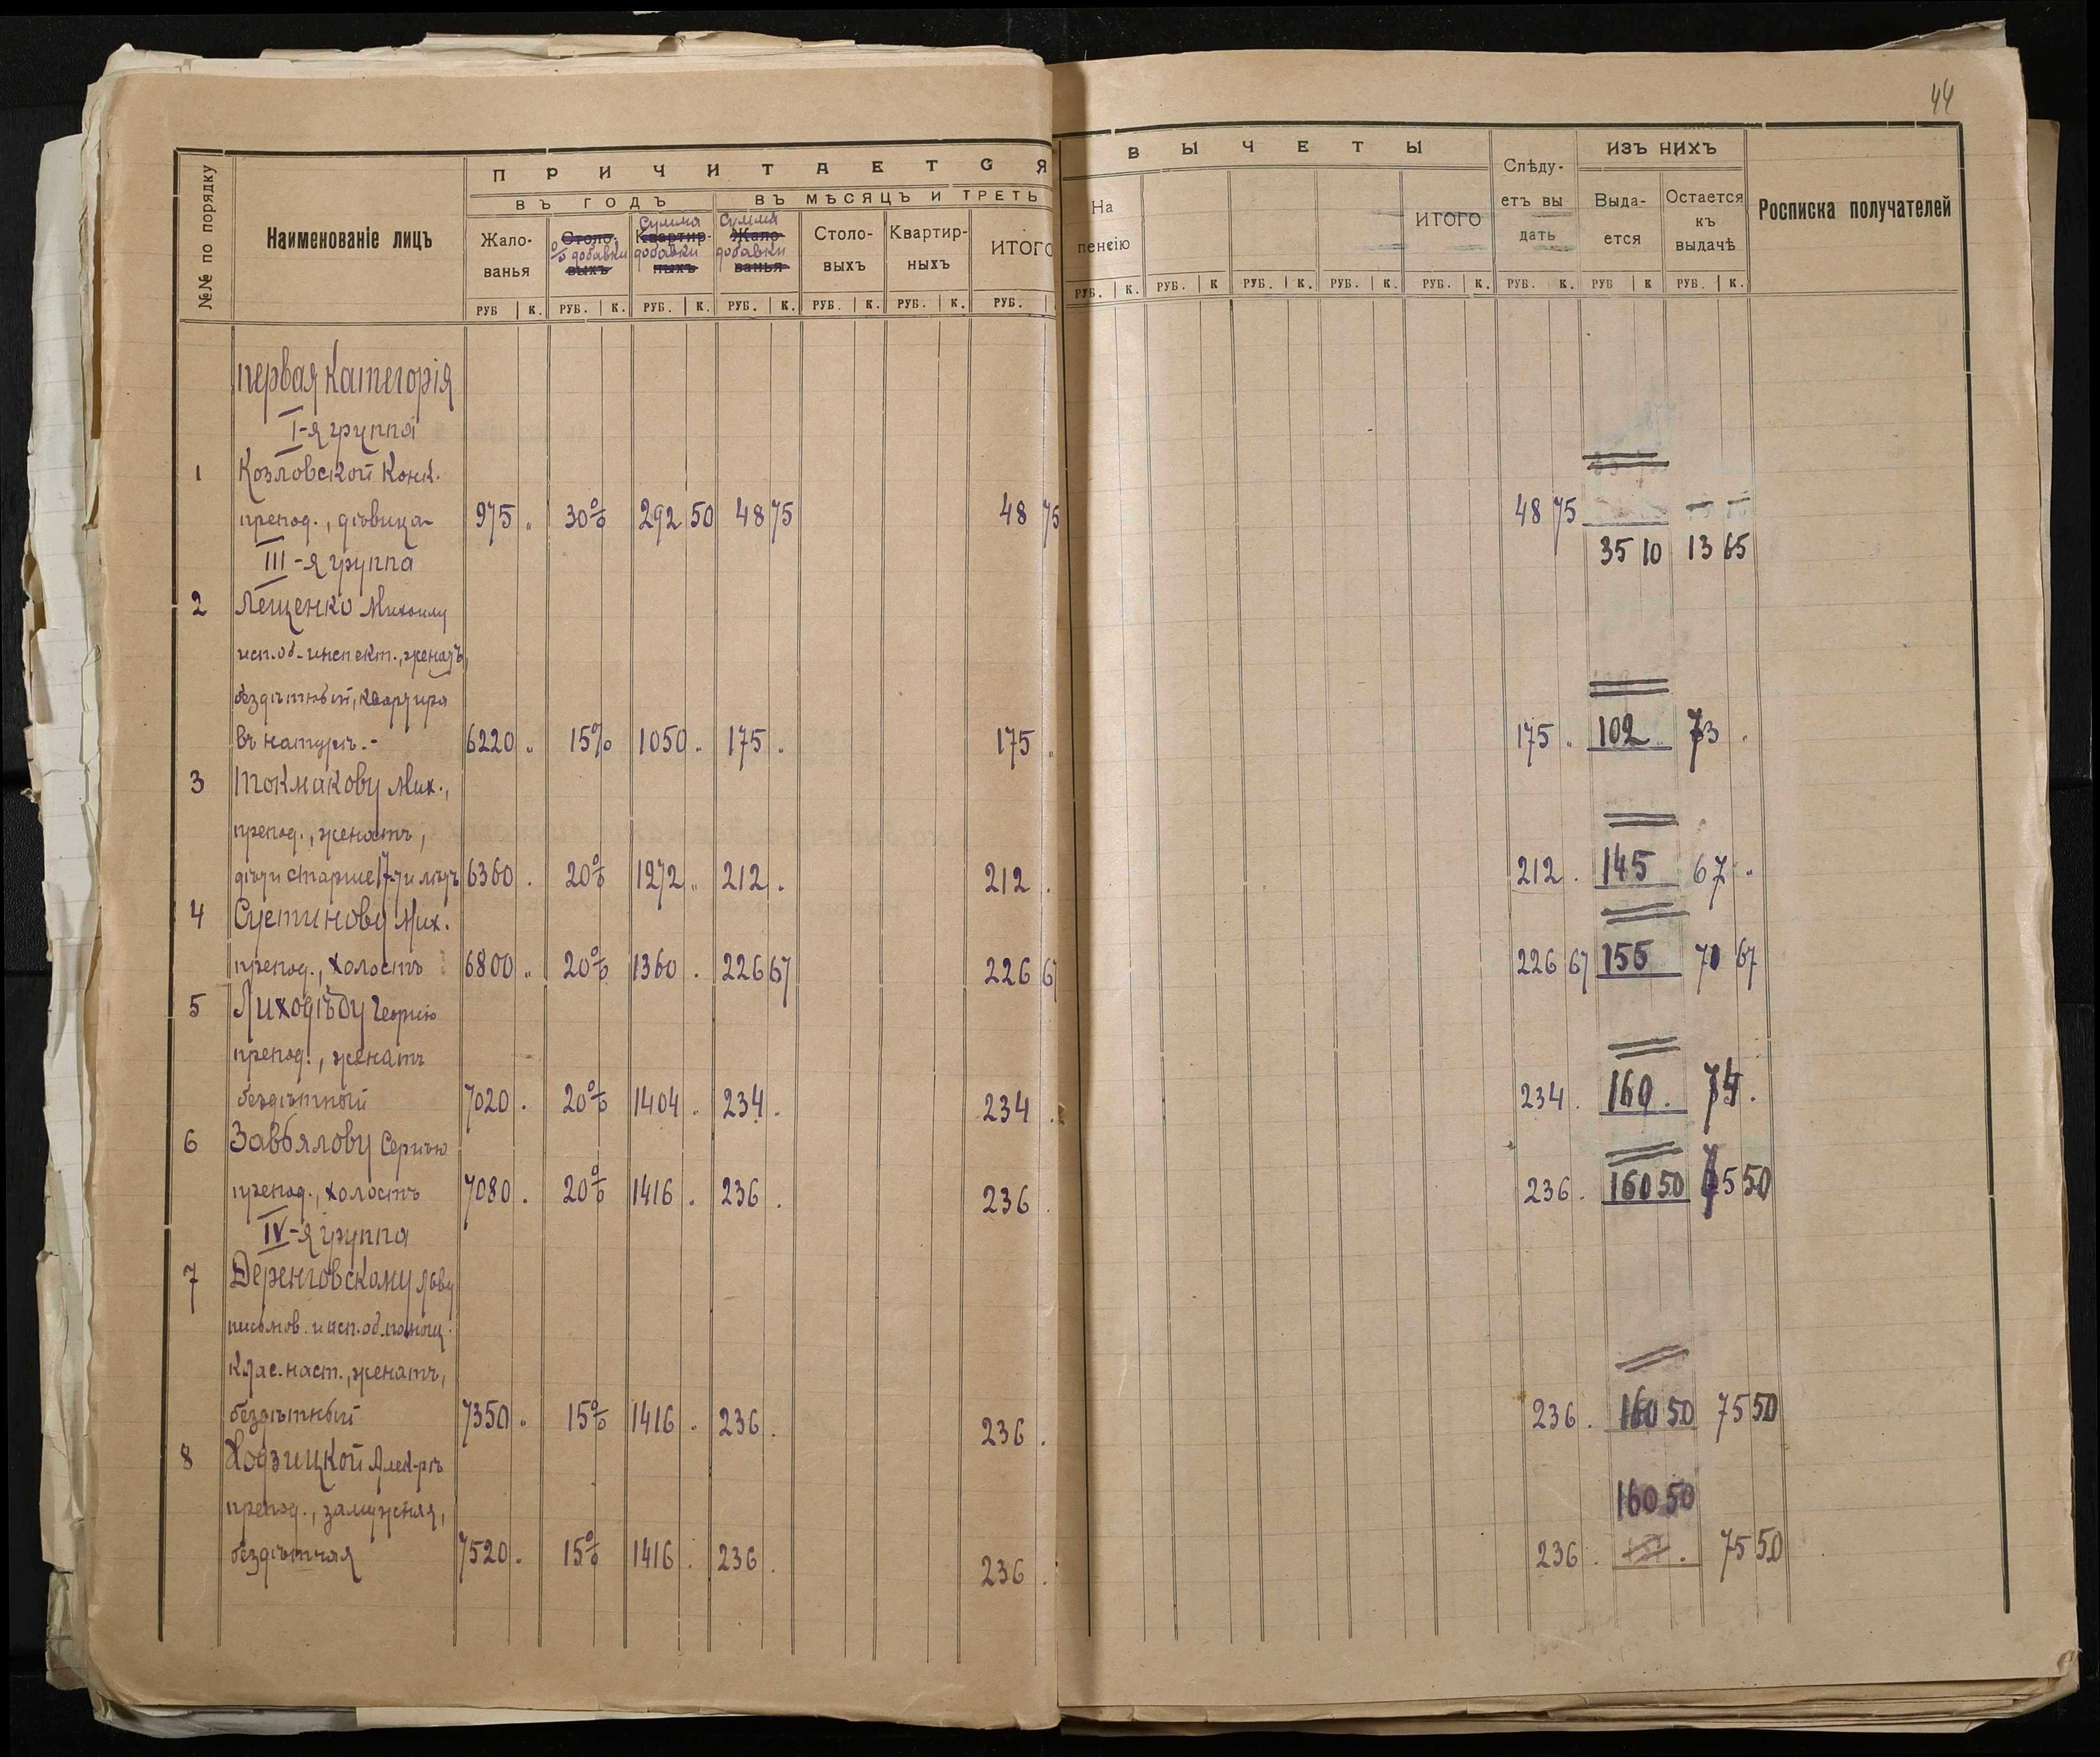 44
№№ по порядку
Наименованіе лицъ
ПРИЧИТАЕТСЯ
ВЪ ГОДЪ
ВЪ МѢСЯЦЪ И ТРЕТЬ
Жало-
ванья
Столо-
выхъ
% добавки
Квартир-
ныхъ
Сумма
добавки
Жало-
ванья
Сумма
добавки
Столо-
выхъ
Квартир-
ныхъ
ИТОГО
РУБ К. РУБ. К. РУБ. К. РУБ. К. РУБ. К. РУБ. К. РУБ.
ВЫЧЕТЫ
На
пенсію
ИТОГО
Слѣду-
етъ вы
дать
ИЗЪ НИХЪ
Выда-
ется
Остается
къ
выдачѣ
Росписка получателей
РУБ. К. РУБ. К РУБ. К. РУБ. К. РУБ. К. РУБ. К. РУБ К РУБ. К.
первая категорія
I-я группа
1 Козловской Конк.
препод., дѣвица 975 „ 30% 292 50 48 75 48 75 48 75
35 10 13 65
III-я группа
2 Лещенко Михаилу
исп. об. инспект., женатъ,
бездѣтный, квартира
въ натурѣ.- 6220 „ 15% 1050 . 175 . 175 „ 175 „ 102 „ 73 .
3 Токмакову Мих.,
препод., женатъ,
дѣти старше 17-ти лѣтъ 6360 . 20% 1272 „ 212 . 212 . 212 . 145 67 „
4 Сустинову Мих.
препод., холостъ 6800 „ 20% 1360 . 226 67 226 67 226 67 155 71 67
5 Лиходѣду Георгію
препод., женатъ
бездѣтный 7020 . 20% 1404 „ 234 . 234 . 234 . 160 . 74 .
6 Завьялову Сергѣю
препод., холостъ 7080 . 20% 1416 . 236 . 236 . 236 . 160 50 75 50
IV-я группа
7 Деренговскому Льву
письмов. и исп. об. помощ.
Клас. наст., женатъ,
бездѣтный 7350 „ 15% 1416 . 236 . 236 . 236 . 160 50 75 50
8 Ходзицкой Алек-рѣ
препод., замужняя,
160 50
бездѣтная 7520 . 15% 1416 . 236 . 236 . 236 . 75 50